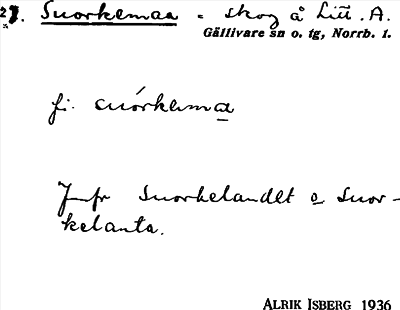 27. Snorkemaa = skog å Litt. A.
Gällivare sn o. tg, Norrb. l.
fi. snórkemaa
Jmfr Snorkelandet o Snor-
kelanta.
ALRIK ISBERG 1936